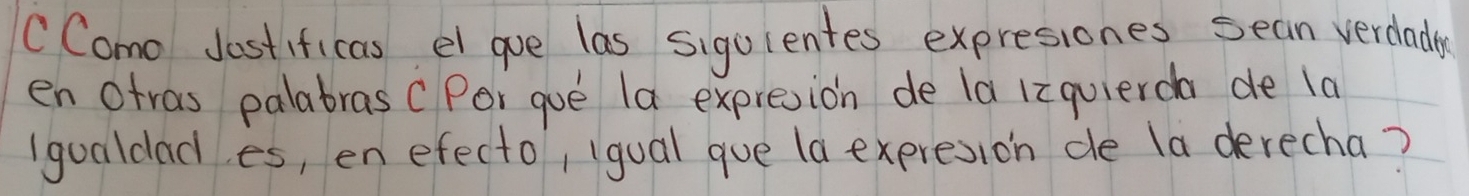 ¿Como Jostificas el que las siguientes expresiones sean verdader
en otras palabras ¿Por qué la expresión de la izquierda de la
igualdad es, en efecto, igual que la expresión de la derecha?